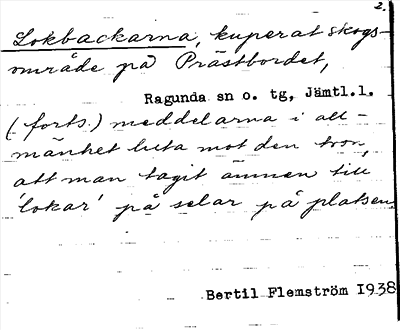 2.
Lokbackarna, kuperat skogs-
område på Prästbordet,
Ragunda sn o. tg, Jämtl.l.
(forts.) meddelarna i all-
mänhet luta mot den tron,
att man tagit ämnen till
'lokar' på selar på platsen.
Bertil Flemström 1938